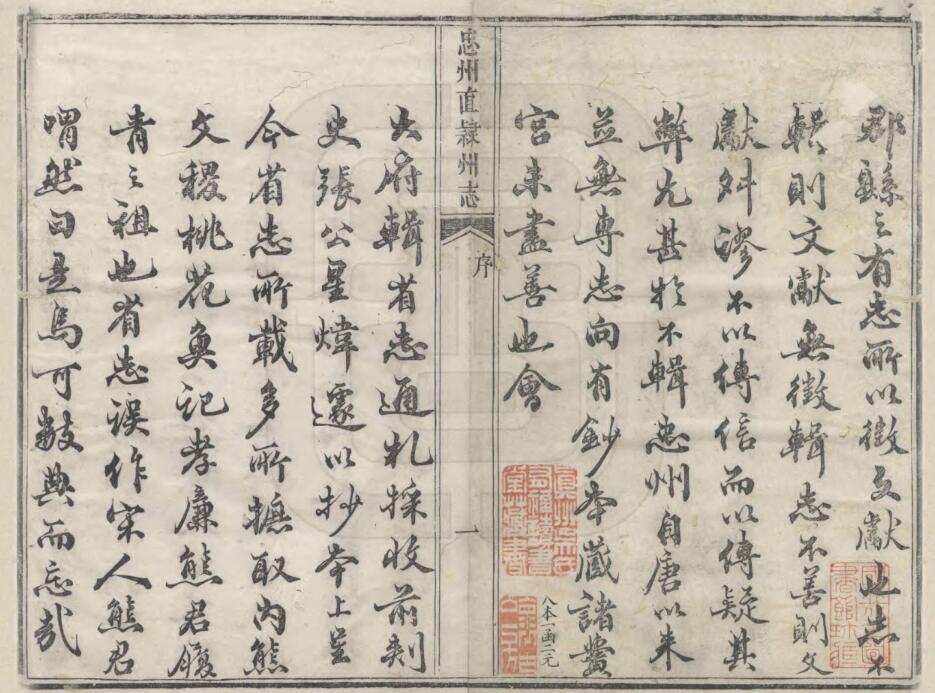 郡縣之有志所以徵文獻也志不
輯則文獻無徵輯志不善則文
獻舛謬不以傳信而以傳疑其
弊尤甚於不輯忠州自唐以來
並無專志向有鈔本藏諸黌
宮未盡善也會
八本一函二元
忠州直隸州志
序
一
大府輯省志通札採收前刺
史張公星煒遂以抄本上呈
今省志所載多所摭取內熊
文稷桃花魚記孝廉熊君履
青之祖也省志誤作宋人熊君
喟然曰是焉可數典而忘哉